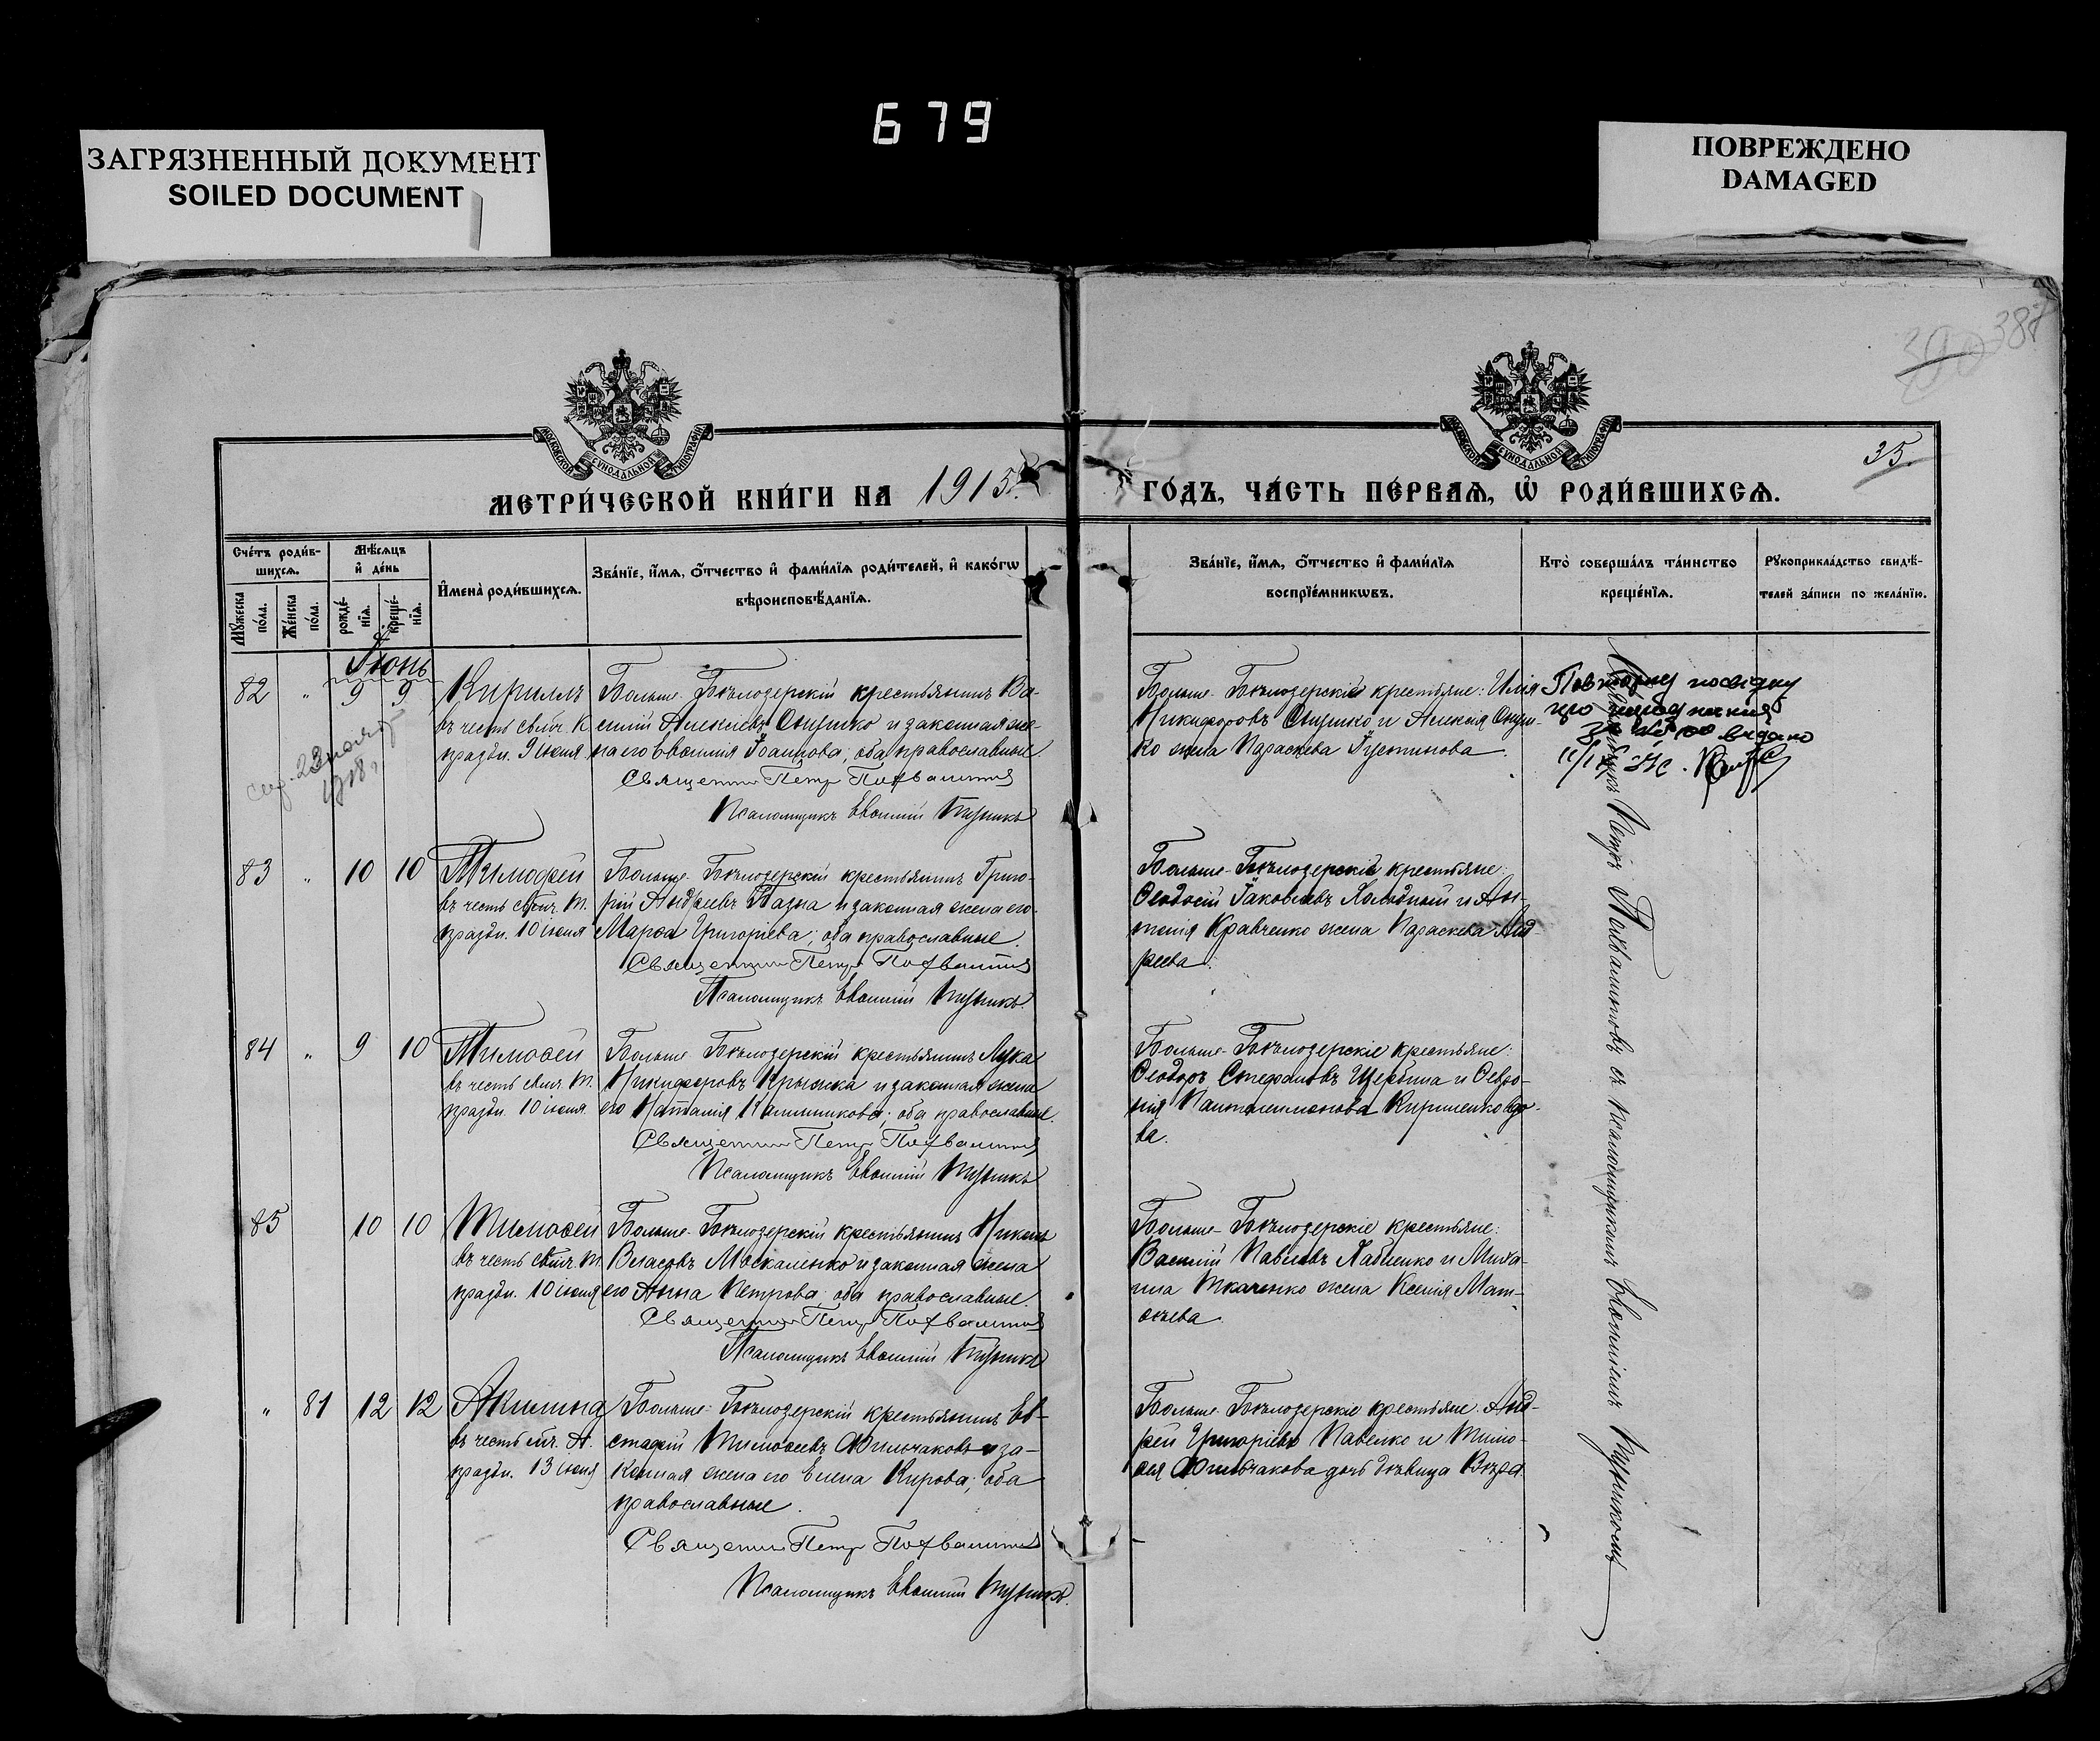 679
ЗАГРЯЗНЕННЫЙ ДОКУМЕНТ
SOILED DOCUMENT
ПОВРЕЖДЕНО
DAMAGED
387
35.
МОСКОВСКОЙ СѴНОДАЛЬНОЙ ТИПОГРАФІИ
МОСКОВСКОЙ СѴНОДАЛЬНОЙ ТИПОГРАФІИ
МЕТРИ́ЧЕСКОЙ КНИ́ГИ НА 1915 г.
ГО́ДЪ, ЧА́СТЬ ПЕ́РВАѦ, Ѡ҆ РОДИ́ВШИХСѦ.
Сче́тъ роди́в-
шихсѧ.
Мꙋ́жеска по́ла.
Же́нска по́ла.
Мѣ́сѧцъ
и҆ де́нь
рожде́-
нїѧ.
креще́-
нїѧ.
И҆мена̀ роди́вшихсѧ.
Зва́нїе, и҆́мѧ, ѻ҆́тчество и҆ фами́лїѧ роди́телей, и҆ како́гѡ
вѣроисповѣ́данїѧ.
Зва́нїе, и҆́мѧ, ѻ҆́тчество и҆ фами́лїѧ
воспрїе́мникѡвъ.
Кто̀ соверша́лъ та́инство
креще́нїѧ.
Рꙋкоприкла́дство свидѣ́-
телей за́писи по жела́нїю.
Іюнь
82 " 9 9 Кириллъ
въ честь свмч. К.
праздн. 9 іюня
Больше-Бѣлозерскій крестьянинъ Ва-
силій Алексіевъ Онушко и законная же-
на его Евѳимія Іоаннова; оба православные.
Священникъ Петръ Похвалитовъ
Псаломщикъ Евѳимій Пузыпикъ
Больше-Бѣлозерскіе крестьяне: Илія
Никифоровъ Онушко и Алексія Онуш-
ко жена Параскева Іустинова.
Повторну посвідку
про народження
за № 100 видано
83 " 10 10 Тимоѳей
въ честь свмч. Т.
праздн. 10 іюня
Больше-Бѣлозерскій крестьянинъ Григо-
рій Андреевъ и законная жена его
Марѳа Григоріева; оба православные.
Священникъ Петръ Похвалитовъ
Псаломщикъ Евѳимій
Больше-Бѣлозерскіе крестьяне:
Ѳеодосій Іаковлевъ Холодный и Ан-
тонія Кравченко жена Параскева Анд-
реева.
84 " 9 10 Тимоѳей
въ честь свмч. Т.
праздн. 10 іюня.
Больше-Бѣлозерскій крестьянинъ Лука
Никифоровъ Крыжка и законная жена
его Наталія Каллиникова; оба православные.
Священникъ Петръ Похвалитовъ
Псаломщикъ Евѳимій
Больше-Бѣлозерскіе крестьяне:
Ѳеодоръ Стефановъ Щербина и Ѳевро-
нія Пантелеимонова Кириленко вдо-
ва.
85 10 10 Тимоѳей
въ честь свмч. Т.
праздн. 10 іюня
Больше-Бѣлозерскій крестьянинъ Никонъ
Власовъ Москаленко и законная жена
его Анна Петрова оба православные.
Священникъ Петръ Похвалитовъ
Псаломщикъ Евѳимій
Больше-Бѣлозерскіе крестьяне:
Василій Павловъ Бабченко и Миха-
ила Ткаченко жена Ксенія Мат-
ѳѣева.
" 81 12 12 Акилина
въ честь мч. А.
праздн. 13 іюня
Больше-Бѣлозерскій крестьянинъ Ев-
стафій Тимоѳеевъ Фильчаковъ и за-
конная жена его Елена Кирова; оба
православные.
Священникъ Петръ Похвалитовъ
Псаломщикъ Евѳимій
Больше-Бѣлозерскіе крестьяне. Анд-
рей Григоріевъ Павелко и Тимо-
ѳея Фильчакова дочь дѣвица Вѣра.
Священникъ Петръ Похвалитовъ съ псаломщикомъ Евѳиміемъ